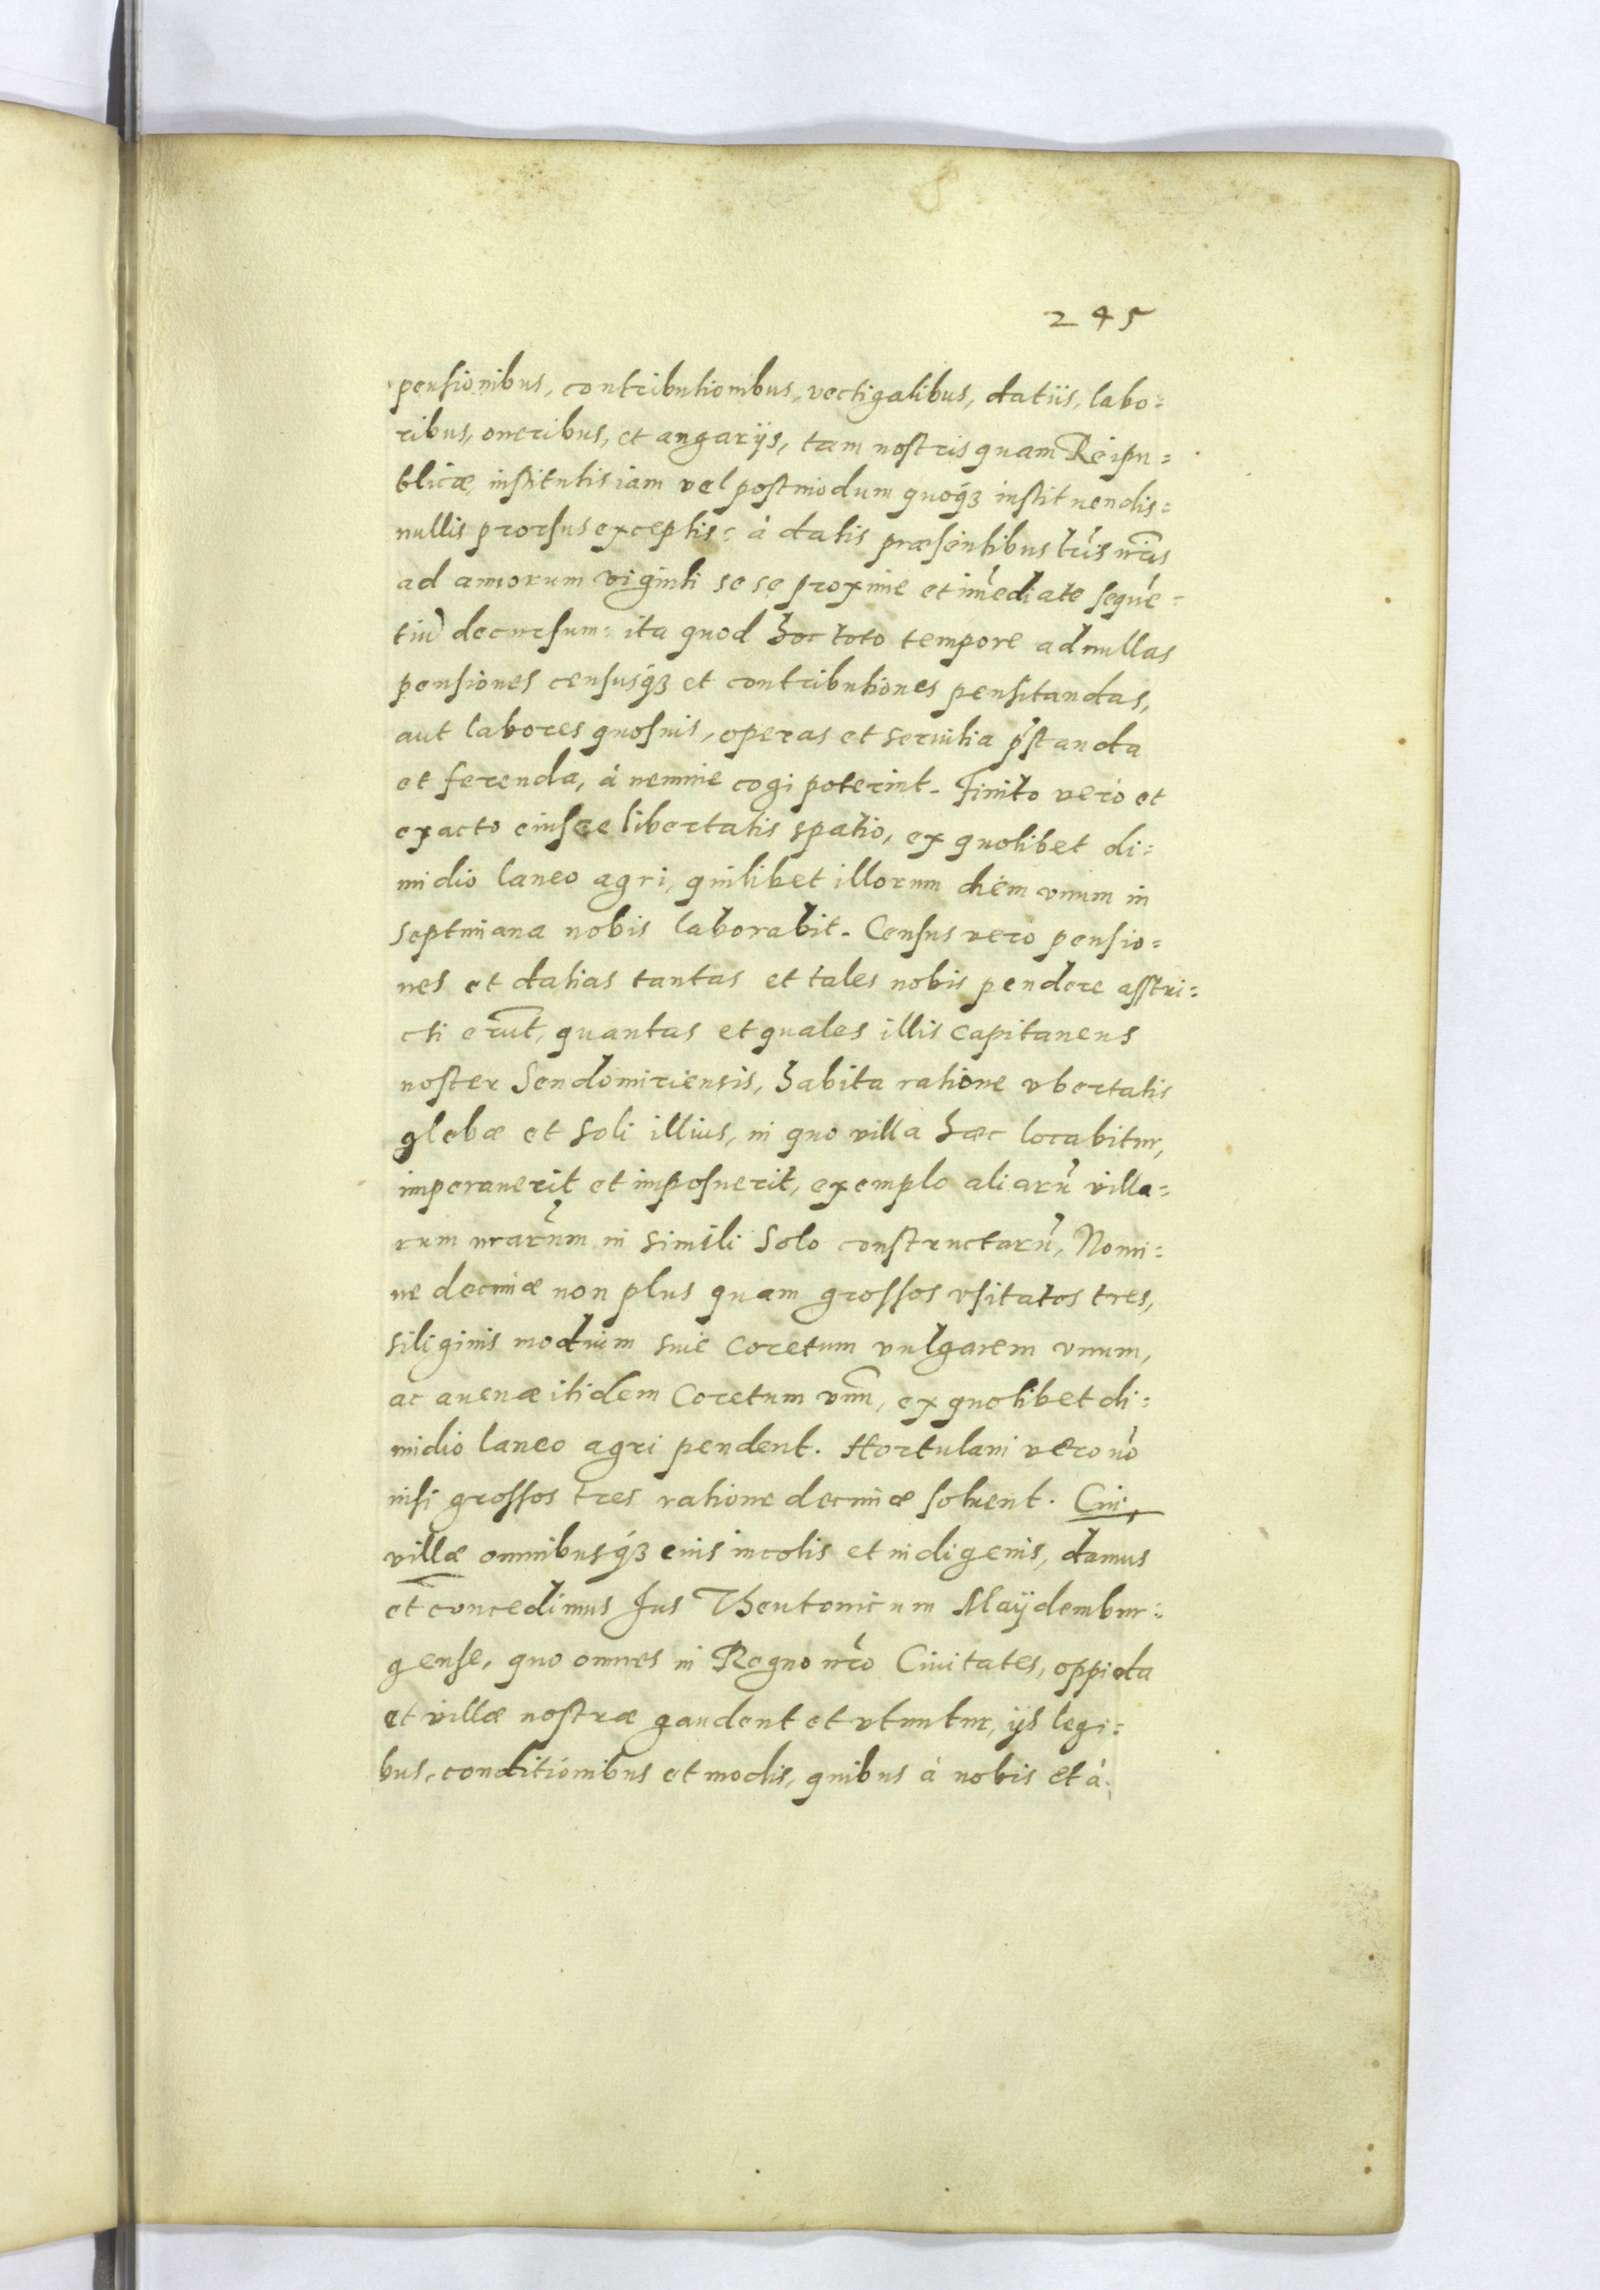 245
pensionibus, contributionibus, vectigalibus, datiis, labo=
ribus, oneribus, et angarijs, tam nostris quam Reipu=
blicæ, institutis iam vel postmodum quoq́ȝ instituendis=
nullis prorsus exceptis: à datis præsentibus lr̃is nr̃is
ad annorum viginti se se proxime et im̃ediate sequẽ=
tiũ decursum: ita quod hoc toto tempore ad nullas
pensiones censusq́ȝ et contributiones pensitandas,
aut labores quosuis, operas et seruitia p̃standa
et ferenda, à nemine cogi poterint. Finito verò et
exacto eiusce libertatis spatio, ex quolibet di=
midio laneo agri, quilibet illorum diem vnum in
septimana nobis laborabit. Census vero pensio=
nes et datias tantas et tales nobis pendere asstri=
cti erũt, quantas et quales illis Capitaneus
noster Sendomiriensis, habita ratione vbertatis
glebæ et soli illius, in quo villa hæc locabitur,
imperauerit et imposuerit, exemplo aliarũ villa=
rum nr̃arum in simili solo constructarũ, Nomi=
ne decimæ non plus quam grossos vsitatos tres,
siliginis modium siue Coretum vulgarem vnum,
ac auenæ itidem Coretum vnũ, ex quolibet di=
midio laneo agri pendent. Hortulani vero nõ
nisi grossos tres ratione decimæ soluent. Cui,
villæ omnibusq́ȝ eius incolis et indigenis, damus
et concedimus Jus Theutonicum Maÿdembur=
gense, quo omnes in Regno nr̃o Ciuitates, oppida
et villæ nostræ gaudent et vtuntur, ijs legi=
bus, conditionibus et modis, quibus à nobis et à